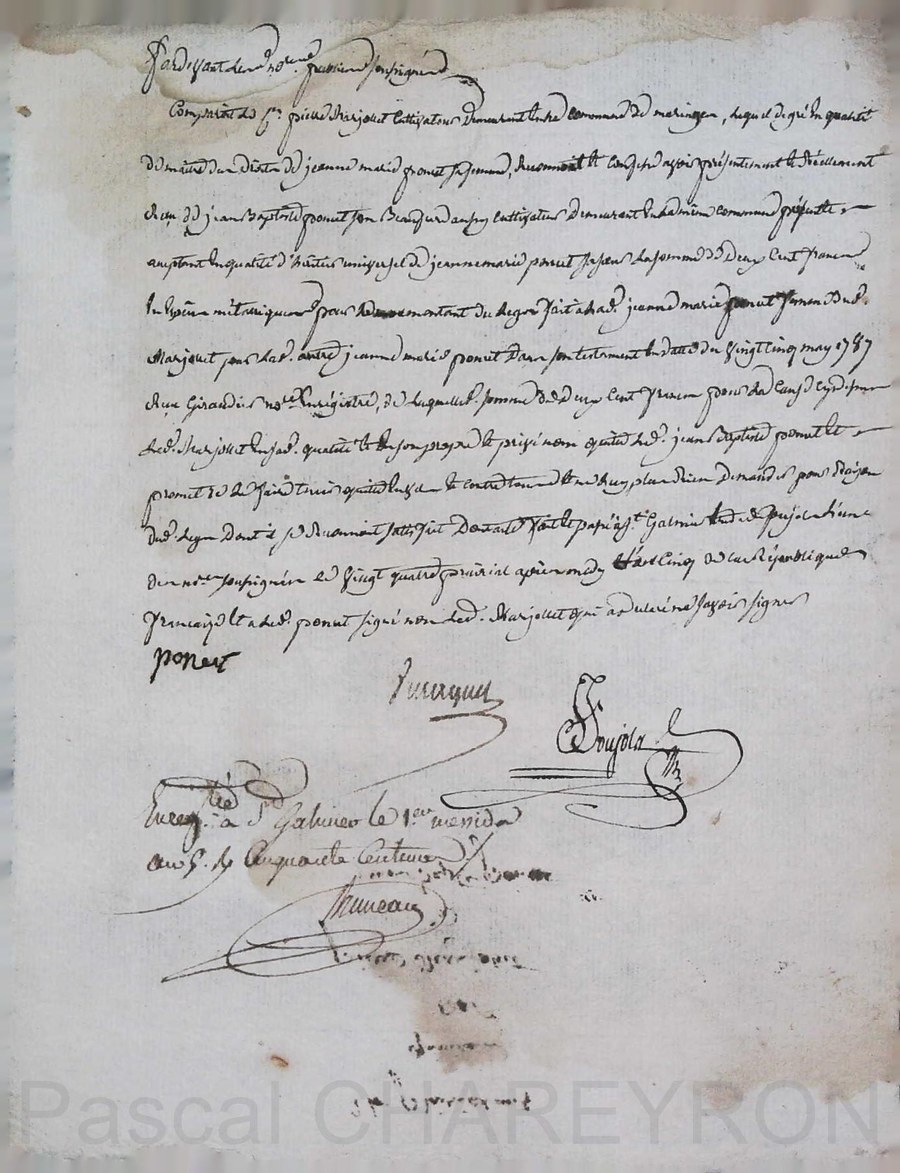 Pardevant les nores. publics soussignés
Comparait le Sr. pierre Marjollet Cultivateur Demeurant en cette commune de maringes, lequel de gré en qualité
de maitre des Droits de jeanne marie poncet sa femme, Reconnoit et Confesse avoir présentement et Réellement
Reçu de jean Baptiste poncet son Beaufrere aussy Cultivateur Demeurant en la même commune présent et
acceptant en qualité d'héritier universel de jeanne marie poncet sa sœur la somme de Deux Cent francs
En Espèces métalliques pour le montant du legs fait à lad. jeanne marie poncet femme Dud.
Marjollet par lad. autre jeanne marie poncet Dans son testament en datte du Vingt Cinq may 1787
Reçu Girardie nore Enrégistré, De laquelle somme de Deux Cent francs pour la Cause cy dessus
led. Marjollet en sad. qualité et en son propre et privé nom quitte led. jean Baptiste poncet et
promet de le faire tenir quitte envers et contre tous et ne luy plus Rien Demander pour Raison
Dud. legs Dont il se Reconnoit satisfait Dont acte fait et passé à St. Galmier Etude de Pujols L'un
des nores. soussignés le Vingt quatre prairial après midy L'an Cinq de la République
française Et a led. poncet signé non led. Marjollet qui a declaré ne savoir signer
ponect
Pujols
Enregtré à St Galmier le 1er messidor
an 5. R Cinquante Centimes
Pascal CHAREYRON